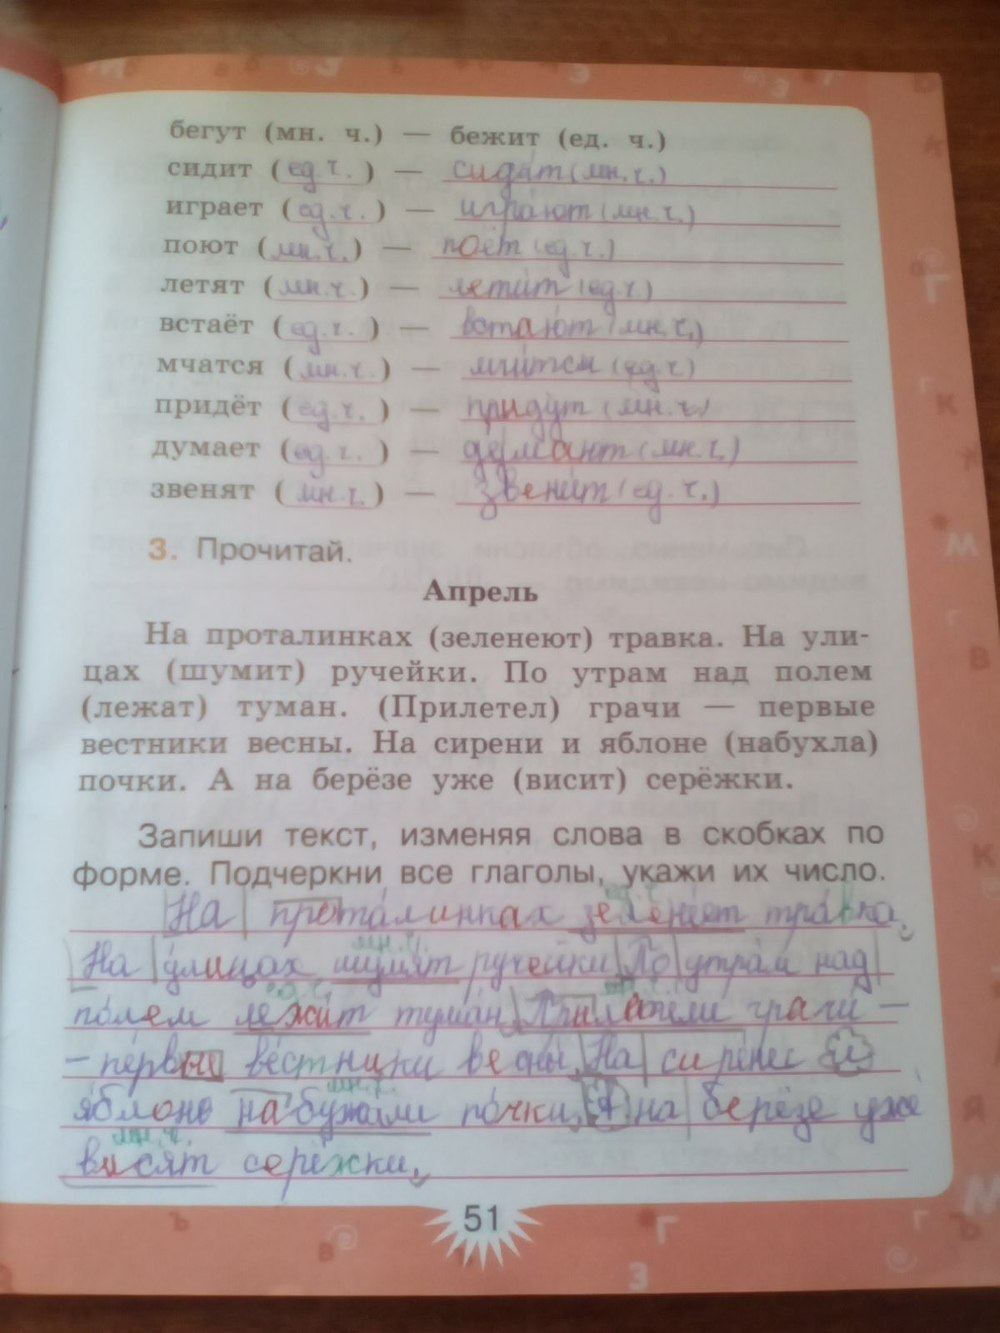 бегут (мн. ч.) — бежит (ед. ч.)
сидит (ед. ч.) — сидят (мн. ч.)
играет (ед. ч.) — играют (мн. ч.)
поют (мн. ч.) — поёт (ед. ч.)
летят (мн. ч.) — летит (ед. ч.)
встаёт (ед. ч.) — встают (мн. ч.)
мчатся (мн. ч.) — мчится (ед. ч)
придёт (ед. ч.) — придут (мн. ч.)
думает (ед. ч.) — (мн. ч.)
звенят (мн. ч.) — звенит (ед. ч.)
3. Прочитай.
Апрель
На проталинках (зеленеют) травка. На ули-
цах (шумит) ручейки. По утрам над полем
(лежат) туман. (Прилетел) грачи — первые
вестники весны. На сирени и яблоне (набухла)
почки. А на берёзе уже (висит) серёжки.
Запиши текст, изменяя слова в скобках по
форме. Подчеркни все глаголы, укажи их число.
ед. ч.
На проталинках зеленеет травка.
мн. ч.
На улицах шумят ручейки. По утрам над
ед. ч. мн. ч.
полем лежит туман. Прилетели грачи —
– первые вестники весны. На сирени и
мн. ч.
яблоне набухли почки. А на берёзе уже
мн. ч.
висят серёжки.
51